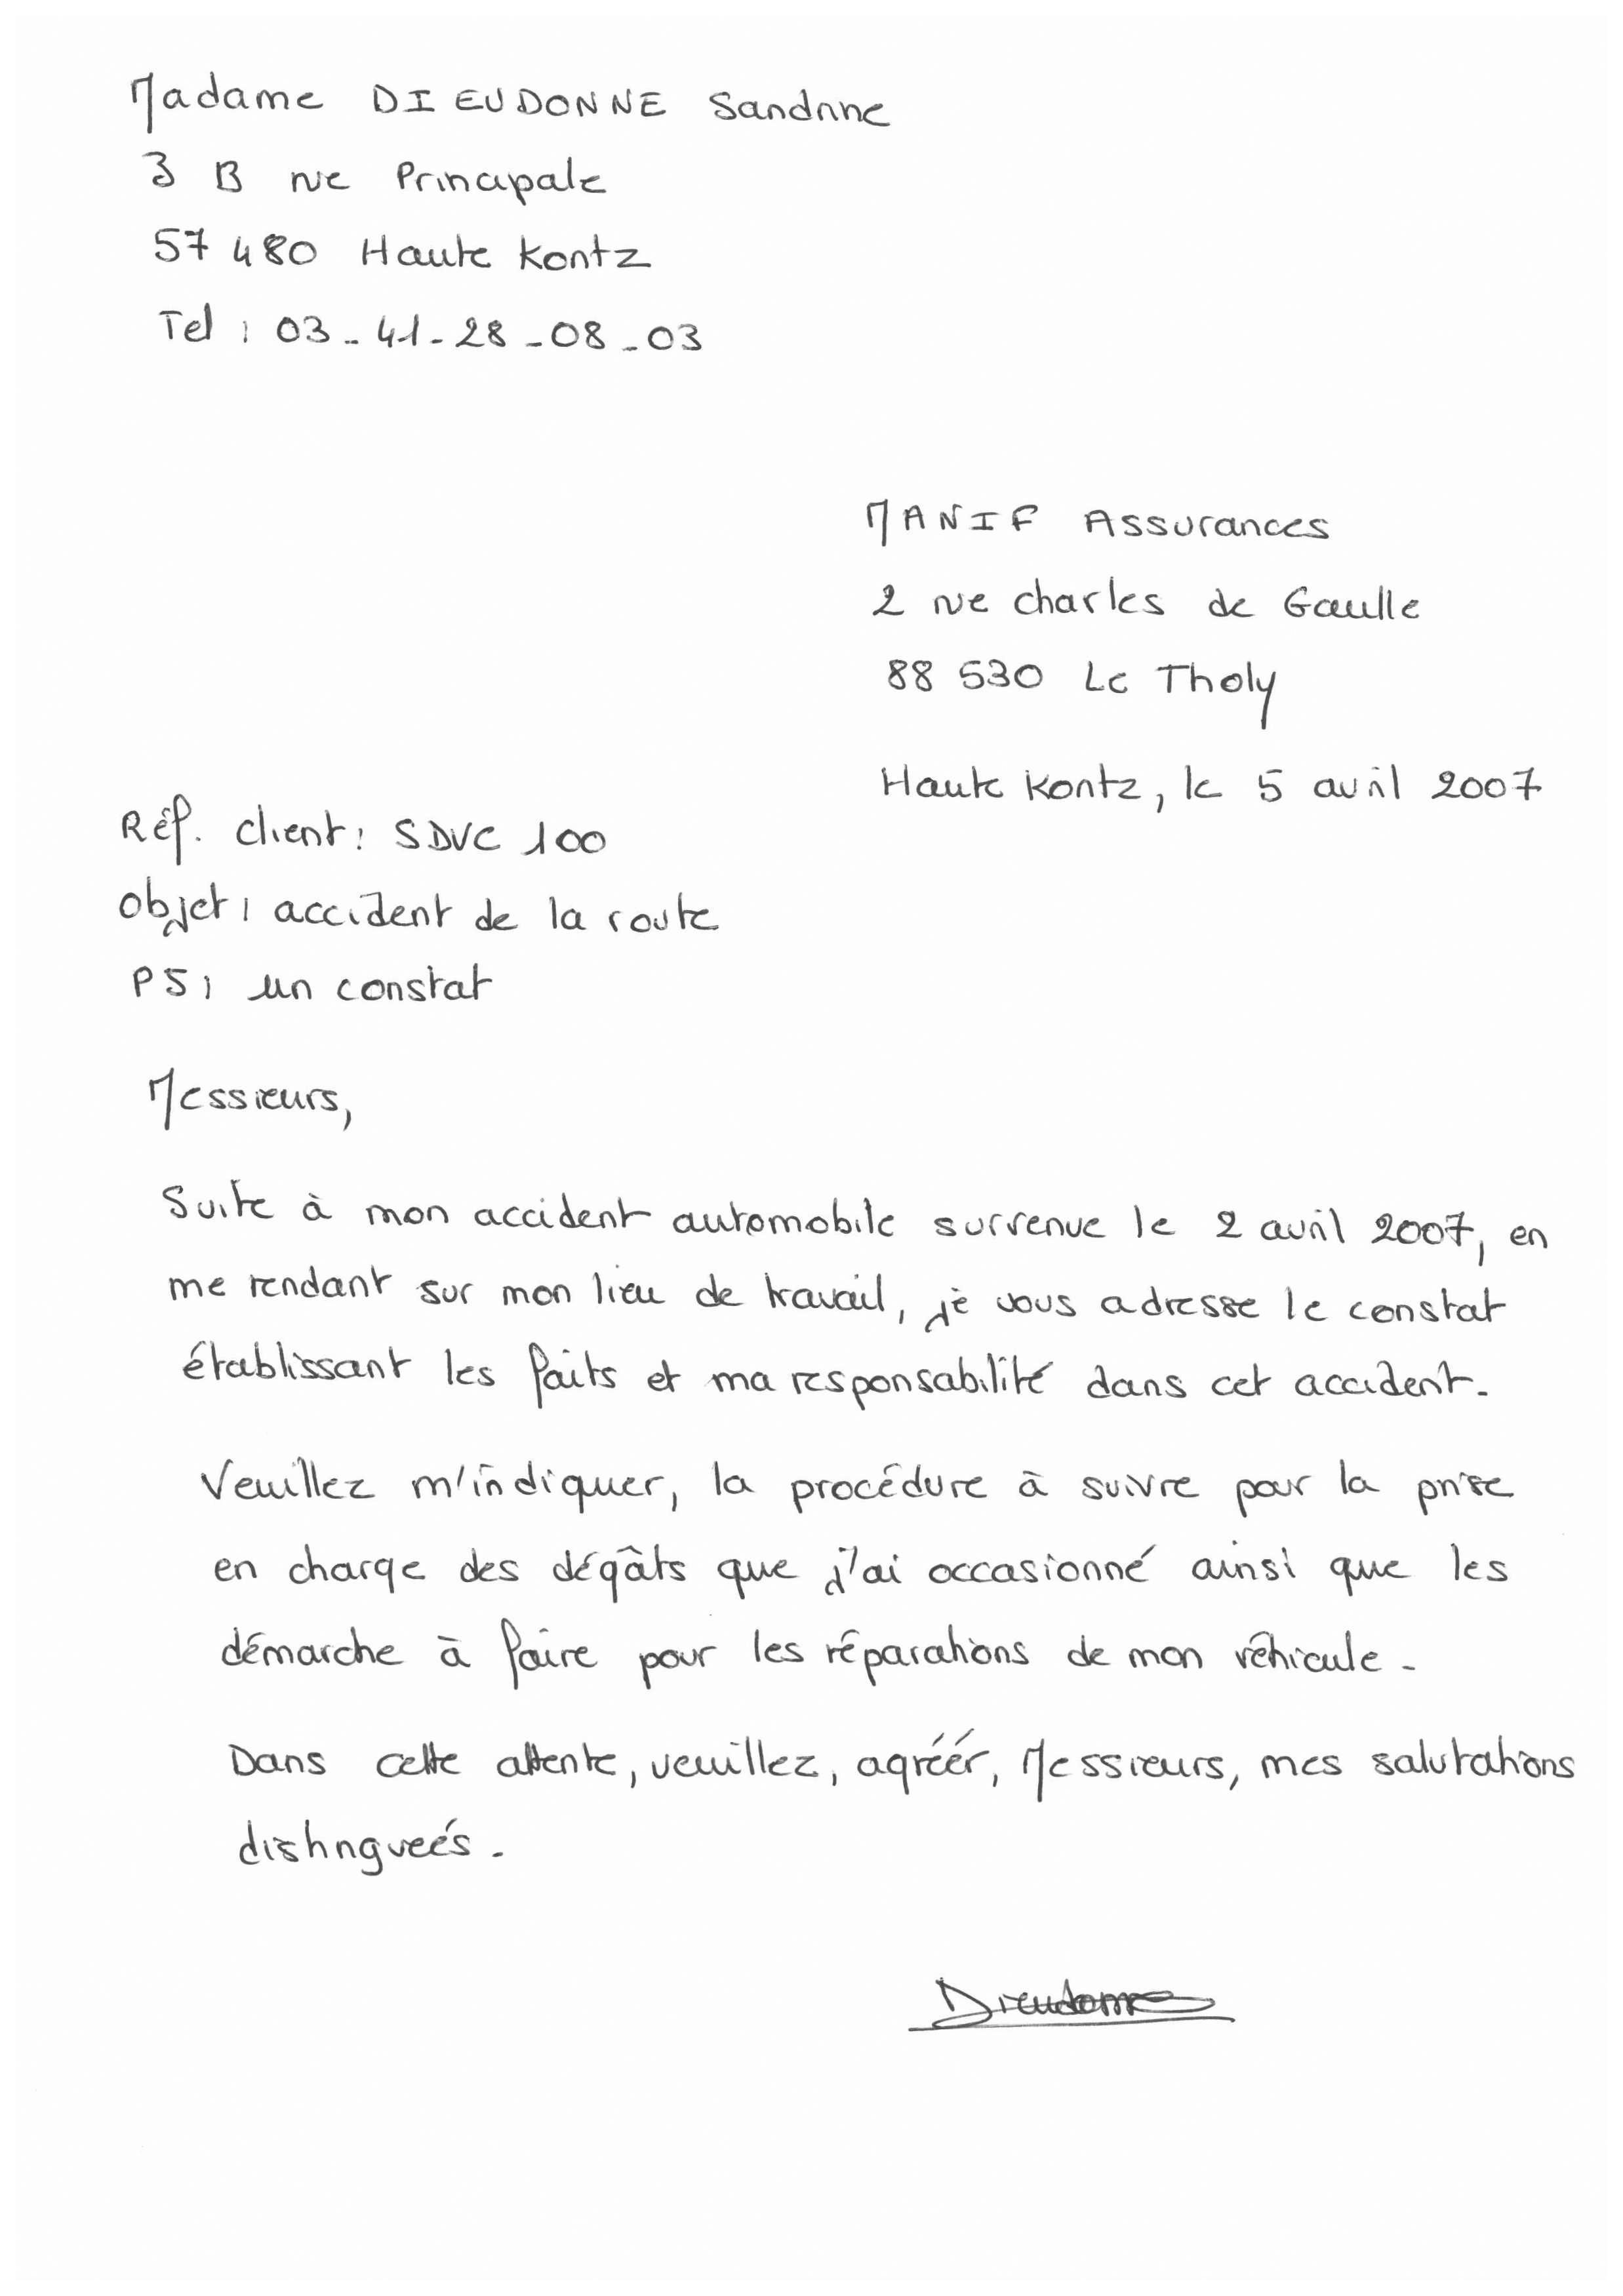 Madame DIEUDONNE Sandrine
3 B rue Principale
57 480 Haute Kontz
Tel : 03-41-28-08-03
MANIF Assurances
2 rue charles de Gaulle
88 530 Le Tholy
Haute Kontz, le 5 avril 2007
Réf. client : SDVC 100
Objet : accident de la route
PS : un constat
Messieurs,
Suite à mon accident automobile survenue le 2 avril 2007, en
me rendant sur mon lieu de travail, je vous adresse le constat
établissant les faits et ma responsabilité dans cet accident.
Veuillez m'indiquer, la procédure à suivre pour la prise
en charge des dégâts que j'ai occasionné ainsi que les
démarche à faire pour les réparations de mon véhicule.
Dans cette attente, veuillez, agréér, Messieurs, mes salutations
distinguées.
Dieudonne